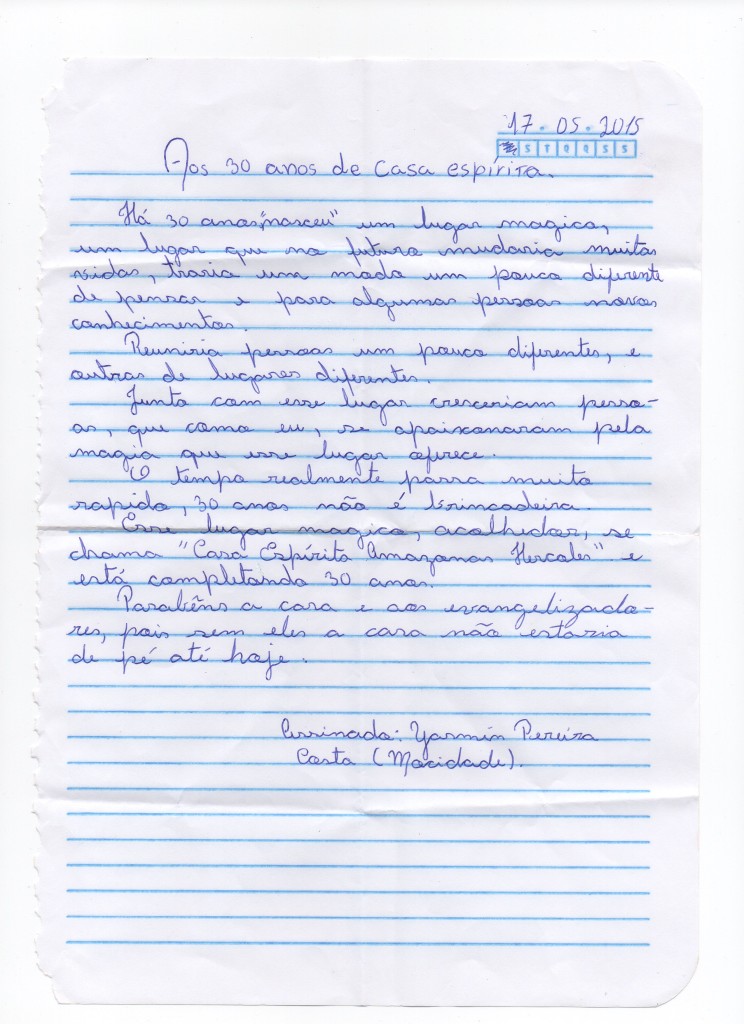 17.05.2015
S T Q Q S S
Aos 30 anos de casa espírita.
Há 30 anos,"nasceu" um lugar magico,
um lugar que no futuro mudaria muitas
vidas, traria um modo um pouco diferente
de pensar e para algumas pessoas novos
conhecimentos.
Reuniria pessoas um pouco diferentes, e
outras de lugares diferentes.
Junto com esse lugar cresceriam pesso-
as, que como eu, se apaixonaram pela
magia que esse lugar oferece.
O tempo realmente passa muito
rapido, 30 anos não é brincadeira.
Esse lugar magico, acolhedor, se
chama "Casa Espírita Amazonas Hercules" e
está completando 30 anos.
Parabêns a casa e aos evangelizado-
res, pois sem eles a casa não estaria
de pé até hoje.
Assinado: Yasmin Pereira
Costa (Mocidade).